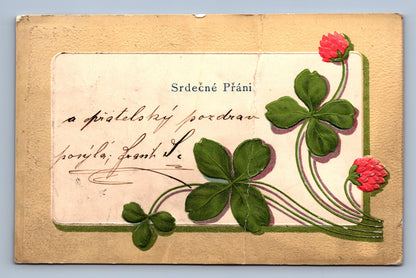 Srdečné Přání
a přátelský pozdrav
posýlá, Frant. S.